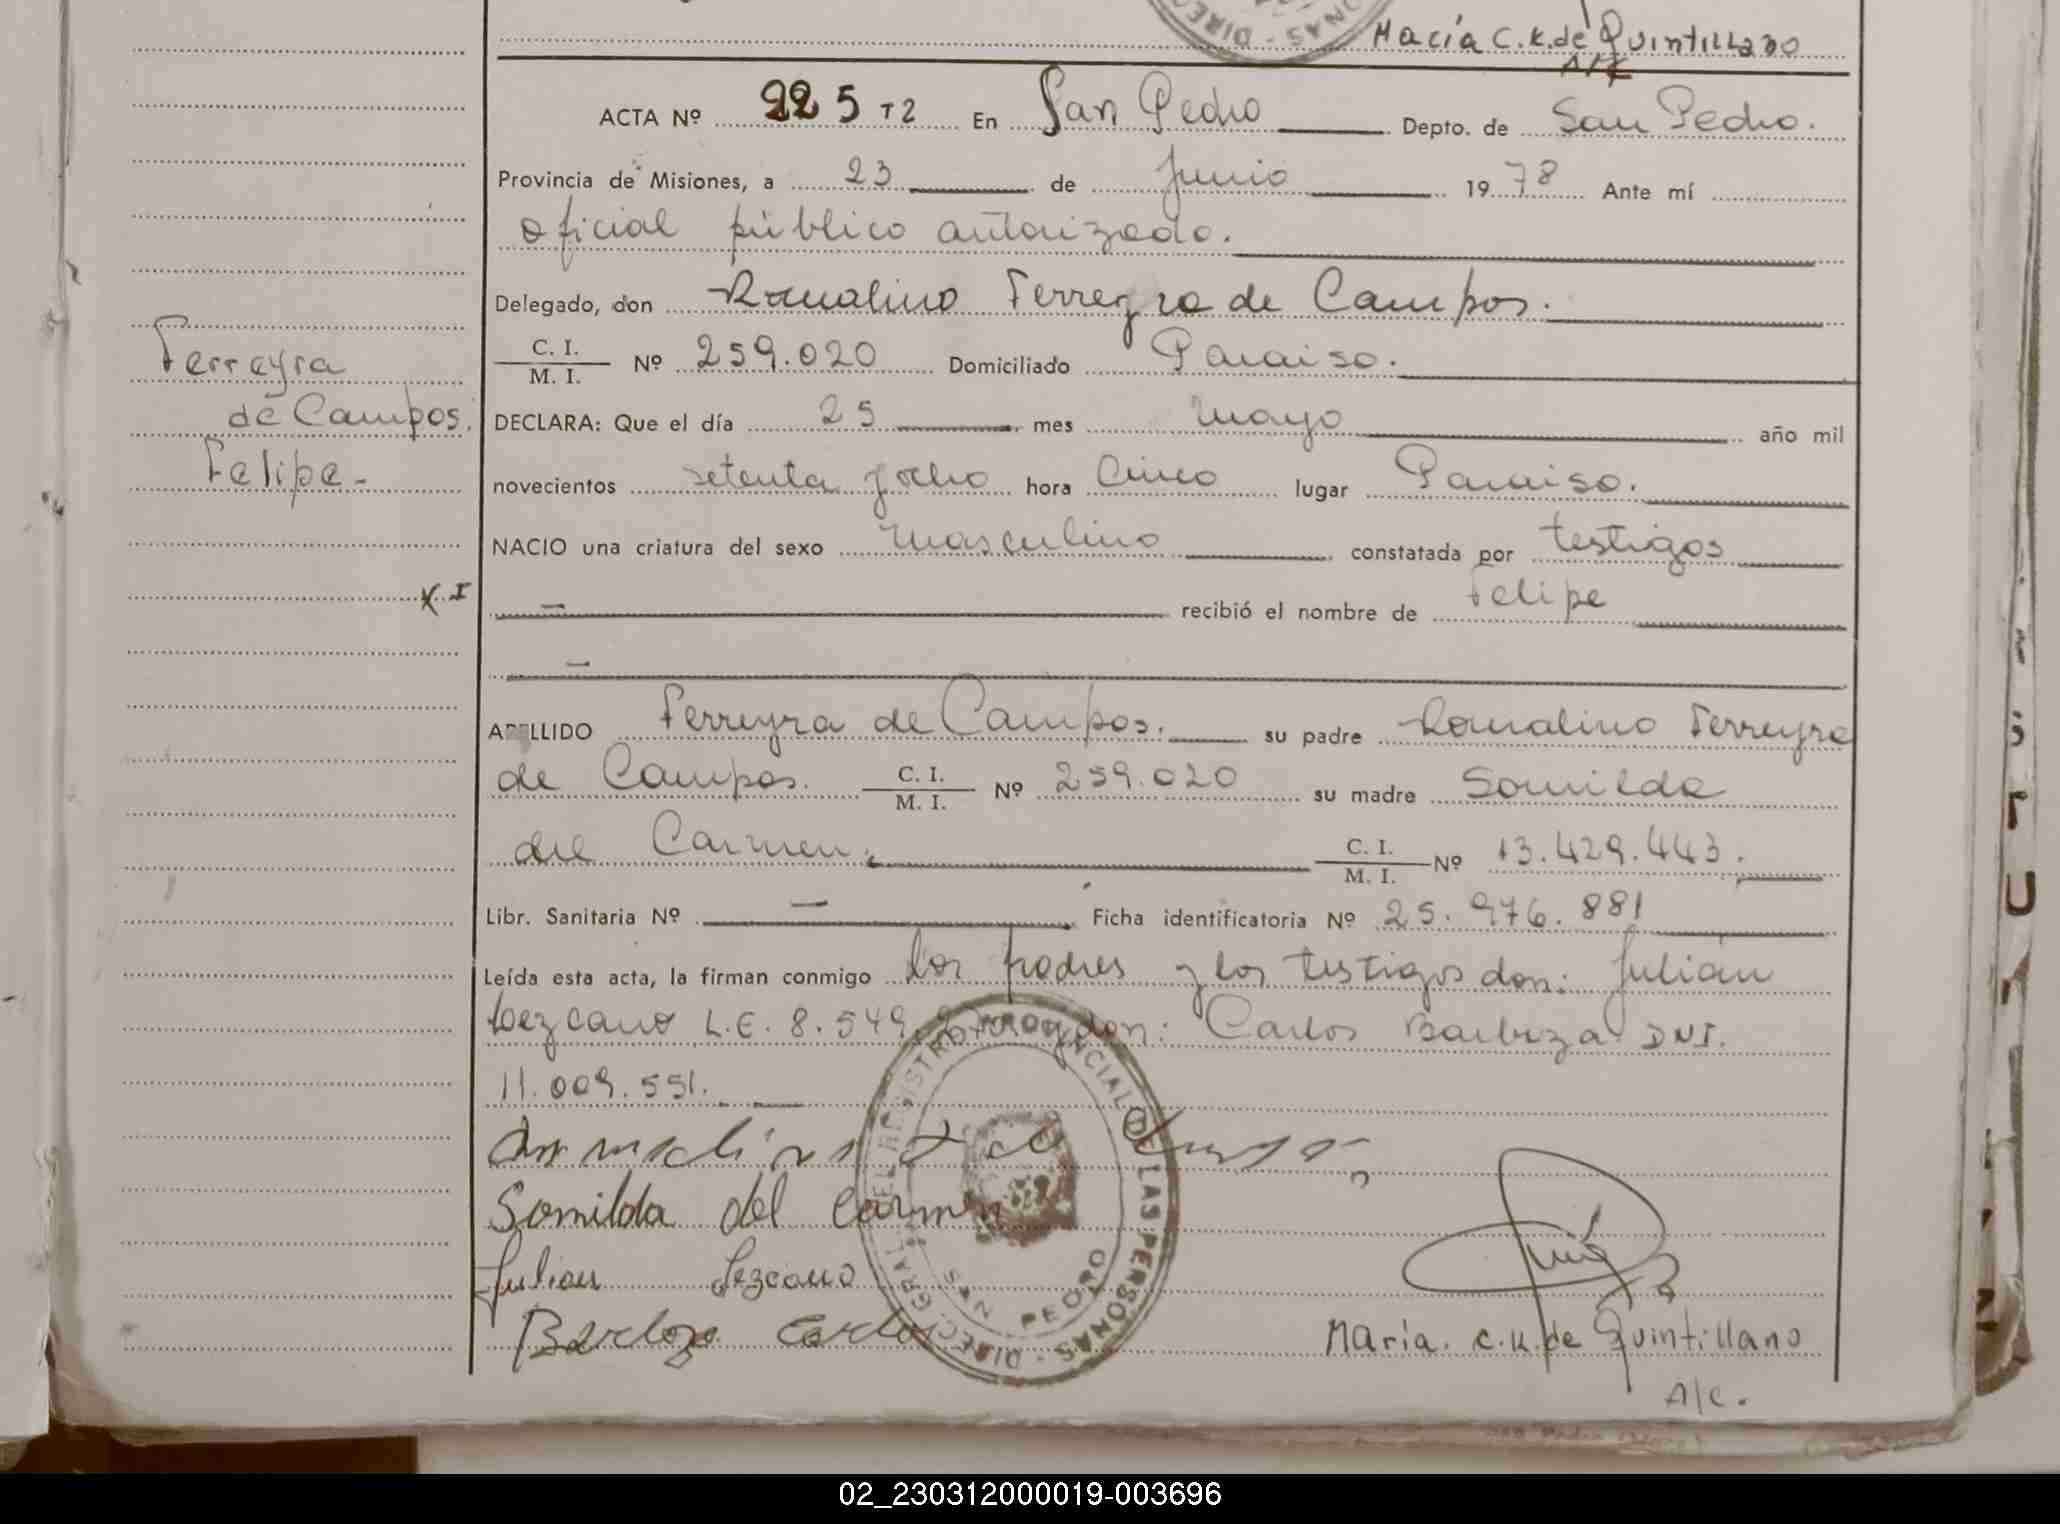 Macía C.K. de Quintillano
ACTA Nº 225 T2 En San Pedro Depto. de San Pedro.
Provincia de Misiones, a 23 de Junio 1978 Ante mí
oficial público autorizado.
Delegado, don Romalino Ferreyra de Campos.
C. I. / M. I. Nº 259.020 Domiciliado Paraiso.
Ferreyra
de Campos.
Felipe.-
DECLARA: Que el día 25 mes mayo año mil
novecientos setenta y ocho hora Cinco lugar Paraiso.
NACIO una criatura del sexo masculino constatada por testigos
X I
— recibió el nombre de Felipe
—
APELLIDO Ferreyra de Campos. su padre Romalino Ferreyra
de Campos. C. I. / M. I. Nº 259.020 su madre Somilda
del Carmen. C. I. / M. I. Nº 13.429.443.
Libr. Sanitaria Nº — Ficha identificatoria Nº 25.976.881
Leída esta acta, la firman conmigo los padres y los testigos don: Julián
Lezcano L.E. 8.549. don: Carlos Barboza DNI.
11.009.551.
Somilda del Carmen
Julian Lezcano
Barboza Carlos
DIRECCION GRAL. DEL REGISTRO PROVINCIAL DE LAS PERSONAS
SAN PEDRO
María. C.K. de Quintillano
A/C.
02_230312000019-003696